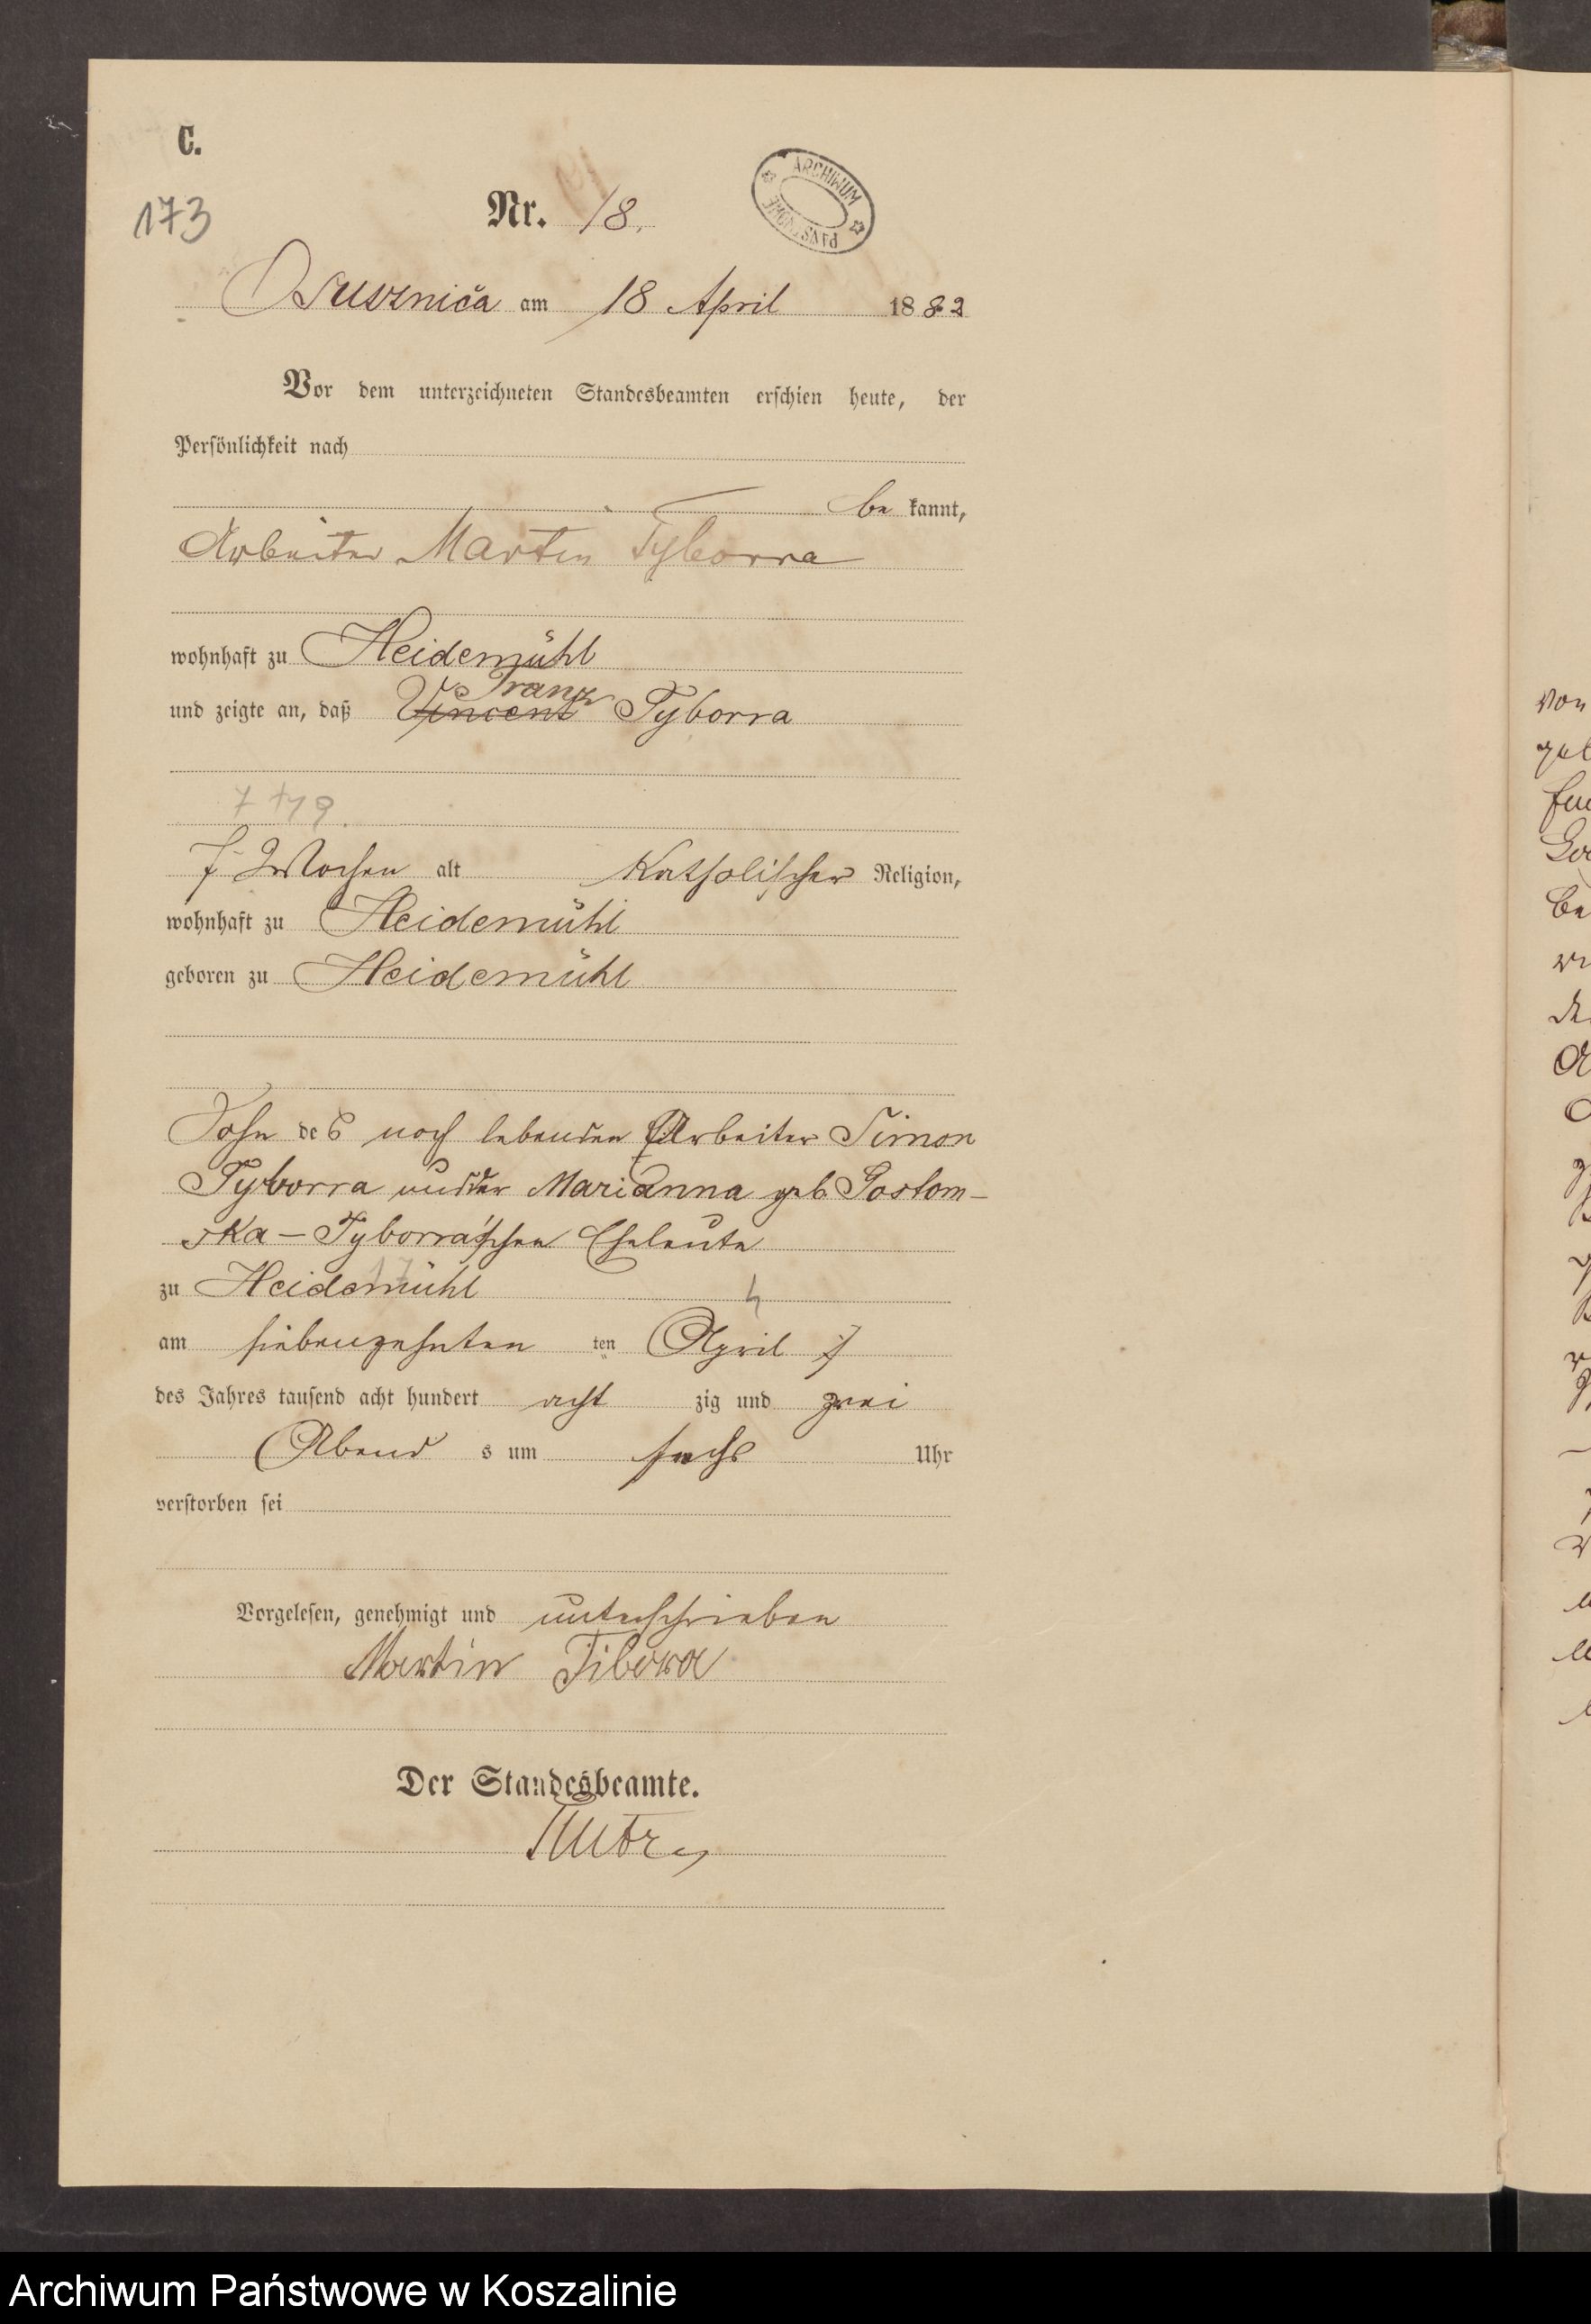 C.
173
Nr. 18.
ARCHIWUM PAŃSTWOWE
Osuszniča am 18 April 1882
Vor dem unterzeichneten Standesbeamten erschien heute, der
Persönlichkeit nach
be kannt,
Arbeiter Martin Tyborra
wohnhaft zu Heidemühl
Franz
und zeigte an, daß Vincent Tyborra
7 Wochen alt Katholischer Religion,
wohnhaft zu Heidemühl
geboren zu Heidemühl
Sohn des noch lebenden Arbeiter Simon
Tyborra und der Marianna geb Gostom-
ska - Tyborra'schen Eheleute
zu Heidemühl
am siebenzehnten ten April
des Jahres tausend acht hundert acht zig und zwei
Abend s um sechs Uhr
verstorben sei
Vorgelesen, genehmigt und unterschrieben
Martin Tibora
Der Standesbeamte.
Archiwum Państwowe w Koszalinie